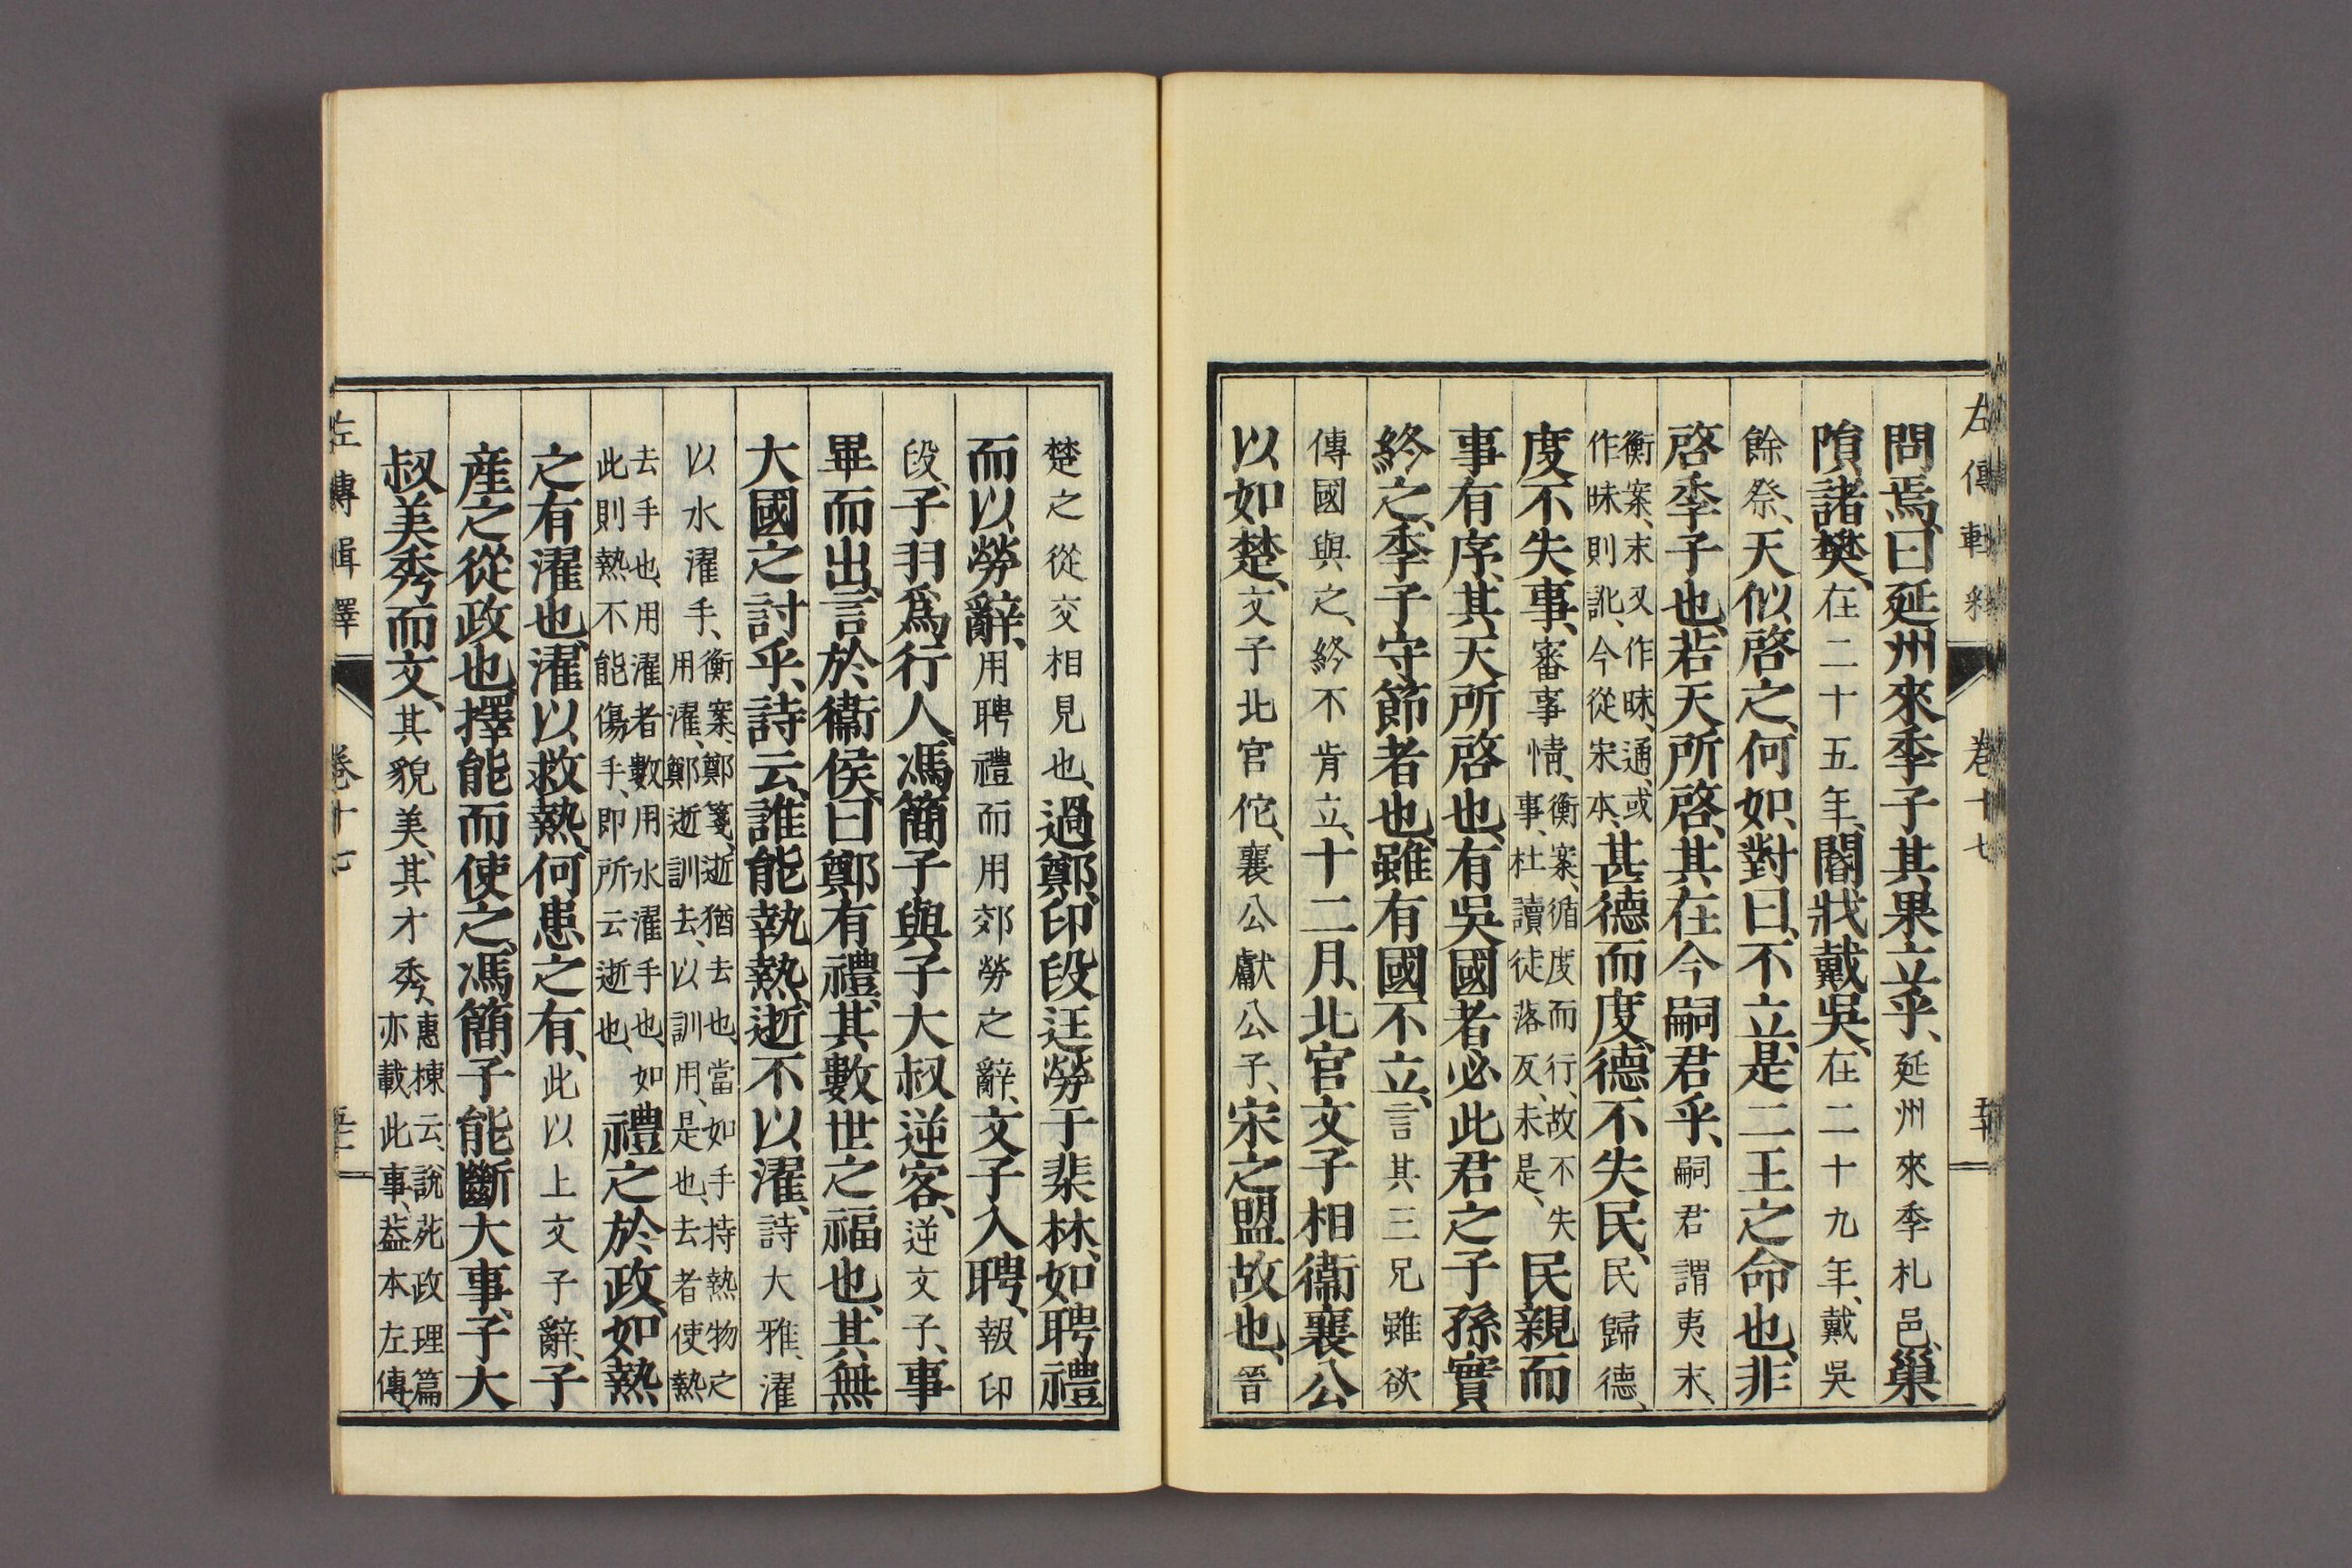 左傳輯釋 卷十七
問焉、曰延州來季子其果立乎、延州來季札邑、巢
隕諸樊、在二十五年、閽戕戴吳、在二十九年、戴吳
餘祭、天似啓之、何如、對曰、不立、是二王之命也、非
啓季子也、若天所啓、其在今嗣君乎、嗣君謂夷末、
衡案、末又作昧、通、或
作昧則訛、今從宋本、甚德而度、德不失民、民歸德、
度不失事、審事情、衡案、循度而行、故不失
事、杜讀徒落反、未是、民親而
事有序、其天所啓也、有吳國者必此君之子孫實
終之、季子守節者也、雖有國不立、言其三兄雖欲
傳國與之、終不肯立、十二月、北宮文子相衞襄公
以如楚、文子北宮佗、襄公獻公子、宋之盟故也、晉
楚之從交相見也、過鄭、印段迋勞于棐林、如聘禮
而以勞辭、用聘禮而用郊勞之辭、文子入聘、報印
段、子羽爲行人、馮簡子與子大叔逆客、逆文子、事
畢而出、言於衞侯、曰鄭有禮、其數世之福也、其無
大國之討乎、詩云、誰能執熱、逝不以濯、詩大雅、濯
以水濯手、衡案、鄭箋、逝猶去也、當如手持熱物之
用濯、鄭逝訓去、以訓用、是也、去者使熱
去手也、用濯者數用水濯手也、如
此則熱不能傷手、卽所云逝也、禮之於政、如熱
之有濯也、濯以救熱、何患之有、此以上文子辭、子
產之從政也、擇能而使之、馮簡子能斷大事、子大
叔美秀而文、其貌美、其才秀、惠棟云、說苑政理篇
亦載此事、蓋本左傳、
左傳輯釋 卷十七